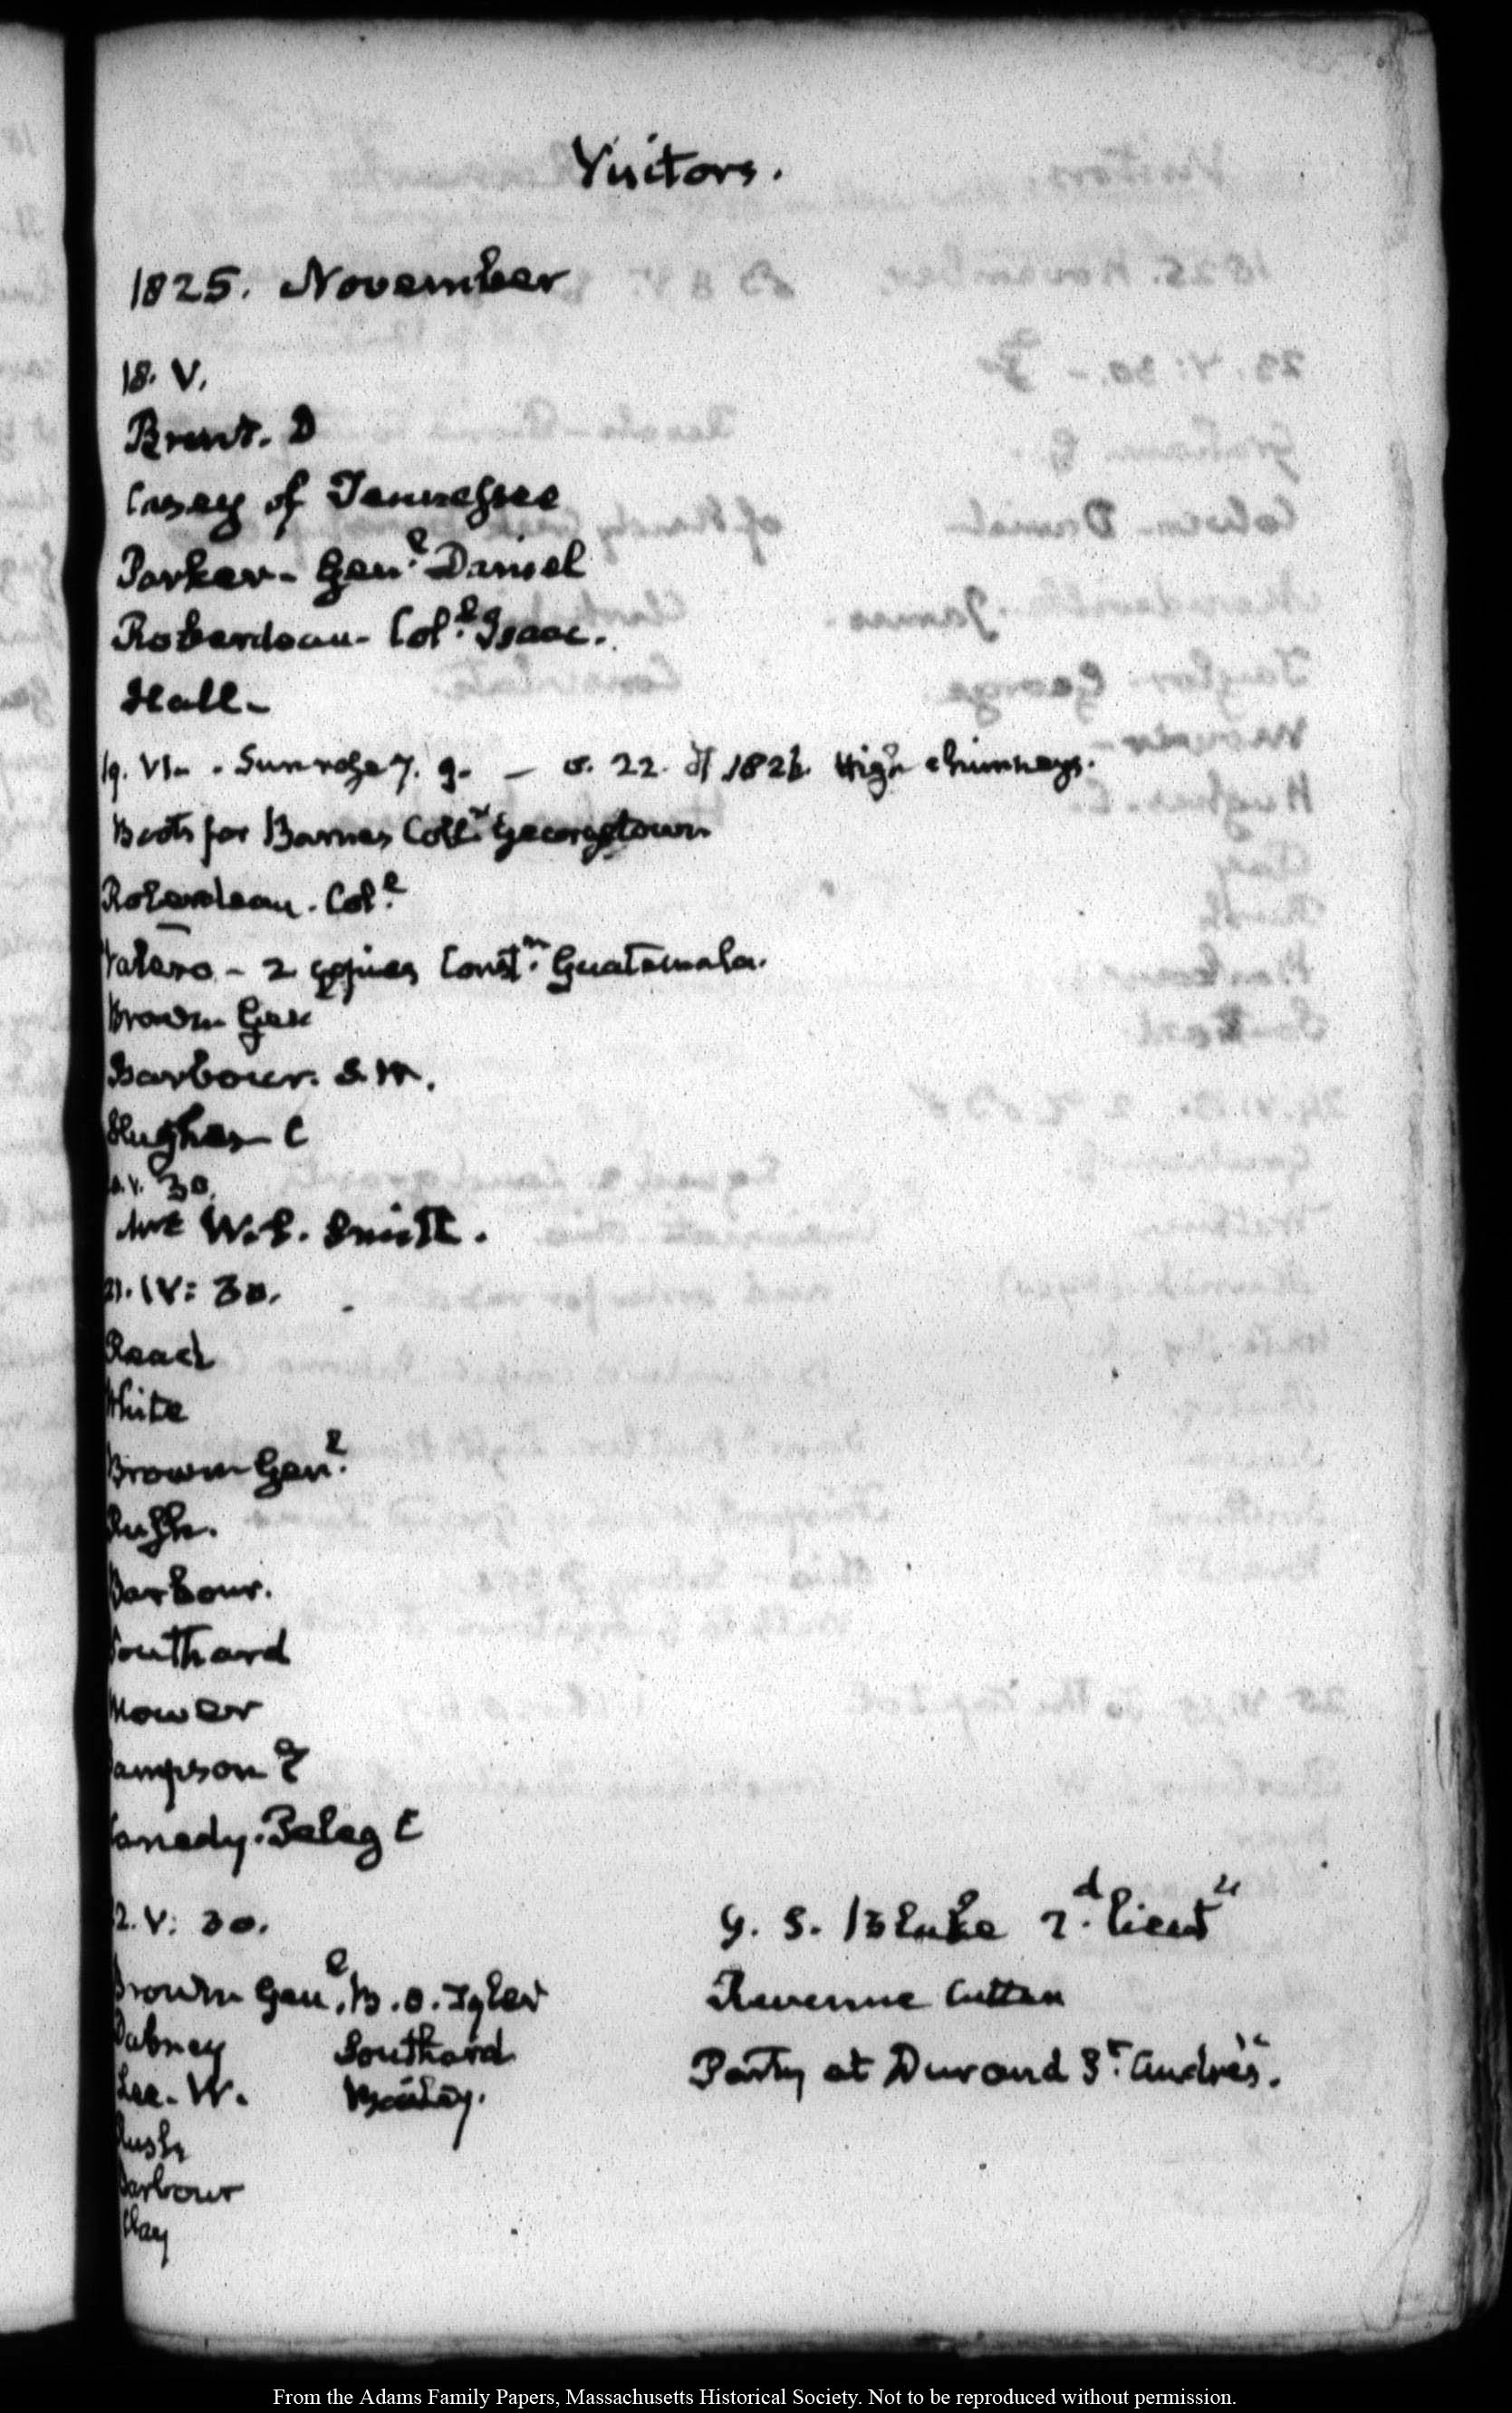 Visitors.
1825. November
18. V.
Brent. D
Casey of Tennessee
Parker- Genl. Daniel
Roberdeau- Coll. Isaac.
Hall-
19. VI. . Sun rose 7. 9. — v. 22. High chimneys.
Boots for Barnes Georgetown
Roberdeau. Coll.
- 2 copies Constn. Guatemala.
Brown Gen
Barbour. S. W.
Hughes C
V. 30.
W. S. Smith.
21. IV: 30.
Read
White
Brown Genl.
Rush.
Barbour.
Southard
Mower
Sampson Z
Kanedy. Peleg C
22. V: 30.
Brown Genl. B. O. Tyler
Dabney Southard
Lee. W. Bailey.
Rush
Barbour
Clay
G. S. Blake 2d. Lieut
Revenue Cutter
Party at Durand St. André's.
From the Adams Family Papers, Massachusetts Historical Society. Not to be reproduced without permission.